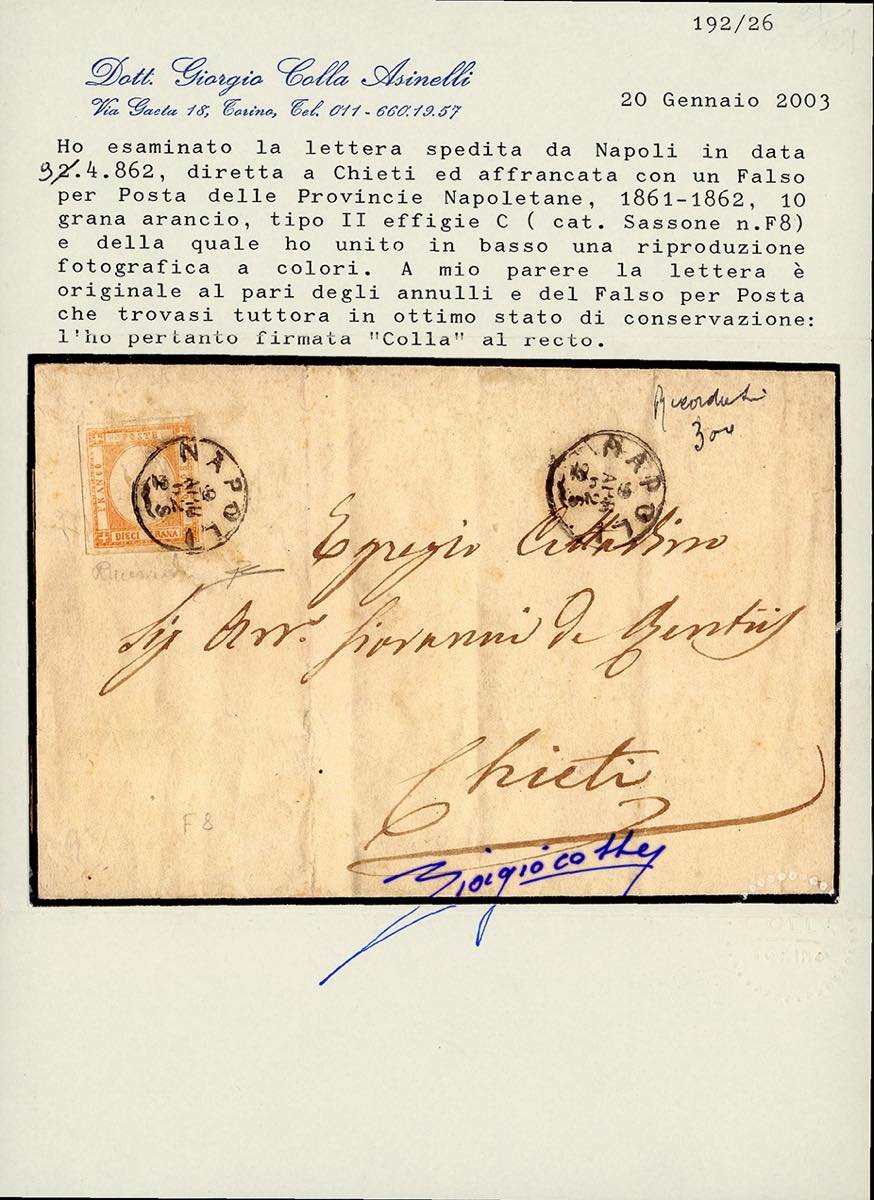 192/26
Dott. Giorgio Colla Asinelli
Via Gaeta 18, Torino, Tel. 011-660.19.57
20 Gennaio 2003
Ho esaminato la lettera spedita da Napoli in data
.4.862, diretta a Chieti ed affrancata con un Falso
per Posta delle Provincie Napoletane, 1861-1862, 10
grana arancio, tipo II effigie C ( cat. Sassone n.F8)
e della quale ho unito in basso una riproduzione
fotografica a colori. A mio parere la lettera è
originale al pari degli annulli e del Falso per Posta
che trovasi tuttora in ottimo stato di conservazione:
l'ho pertanto firmata "Colla" al recto.
300
POSTE
FRANCO
DIECI GRANA
NAPOLI
NAPOLI
Egregio Cittadino
Sig Avv.º Giovanni de
Chieti
F8
Giorgio Colla